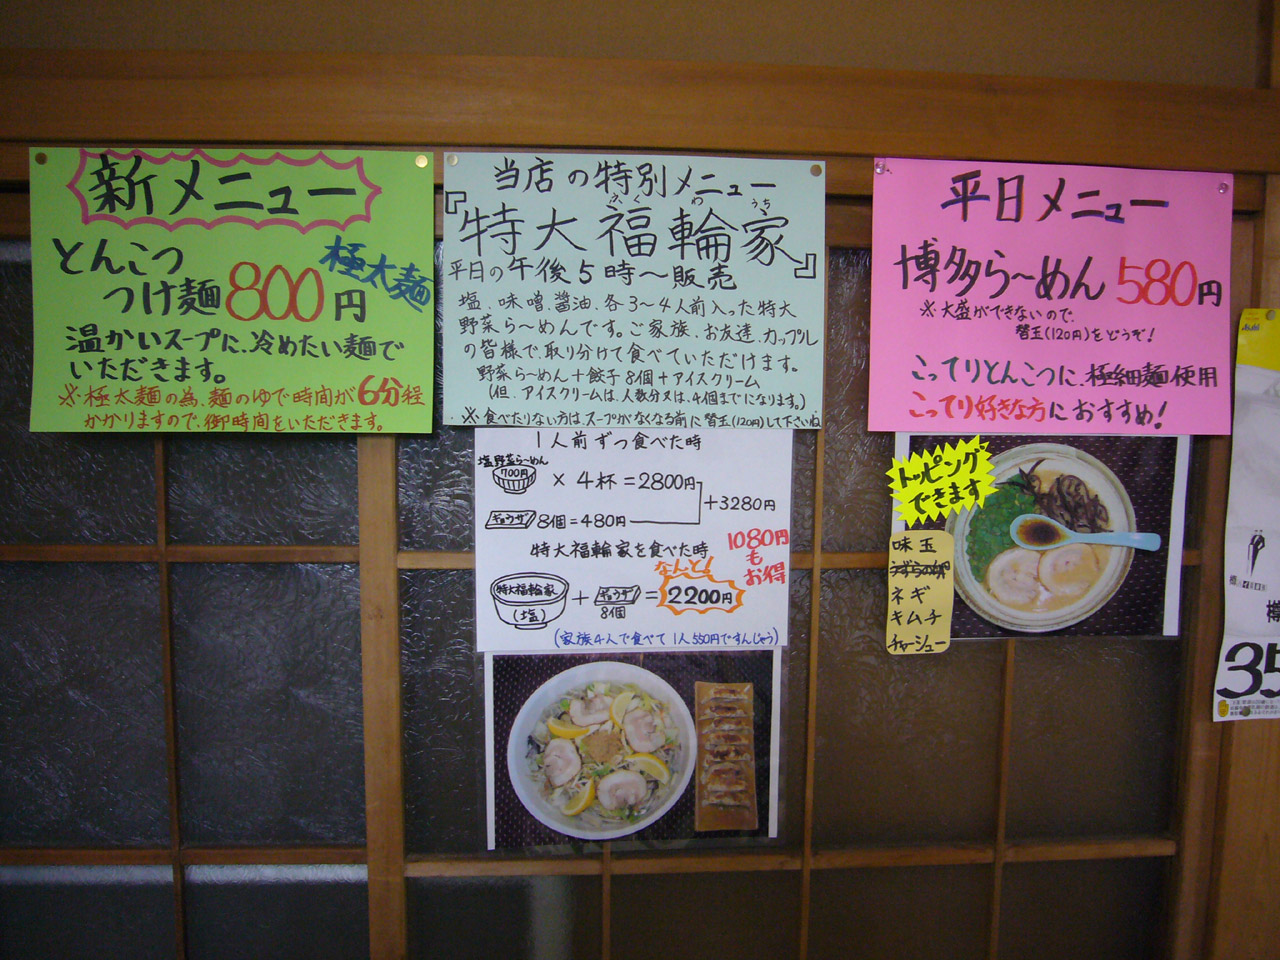 新メニュー
とんこつ
つけ麺800円
極太麺
温かいスープに、冷めたい麺で
いただきます。
※極太麺の為、麺のゆで時間が6分程
かかりますので、御時間をいただきます。
当店の特別メニュー
ふく わ うち
『特大福輪家』
平日の午後5時〜販売
塩、味噌、醤油、各3〜4人前入った特大
野菜ら〜めんです。ご家族、お友達、カップル
の皆様で、取り分けて食べていただけます。
野菜ら〜めん+餃子8個+アイスクリーム
(但、アイスクリームは、人数分又は、4個までになります。)
※食べたりない方は、スープがなくなる前に替玉(120円)して下さいね
1人前ずつ食べた時
塩野菜ら〜めん
700円 × 4杯=2800円
+3280円
ギョウザ 8個=480円
特大福輪家を食べた時
1080円
も
お得
なんと!
特大福輪家
(塩)
+ ギョウザ = 2200円
8個
(家族4人で食べて1人550円ですんじゃう)
平日メニュー
博多ら〜めん 580円
※大盛ができないので、
替玉(120円)をどうぞ!
こってりとんこつに、極細麺使用
こってり好きな方におすすめ!
トッピング
できます
味玉
うずらの卵
ネギ
キムチ
チャーシュー
Asahi
35